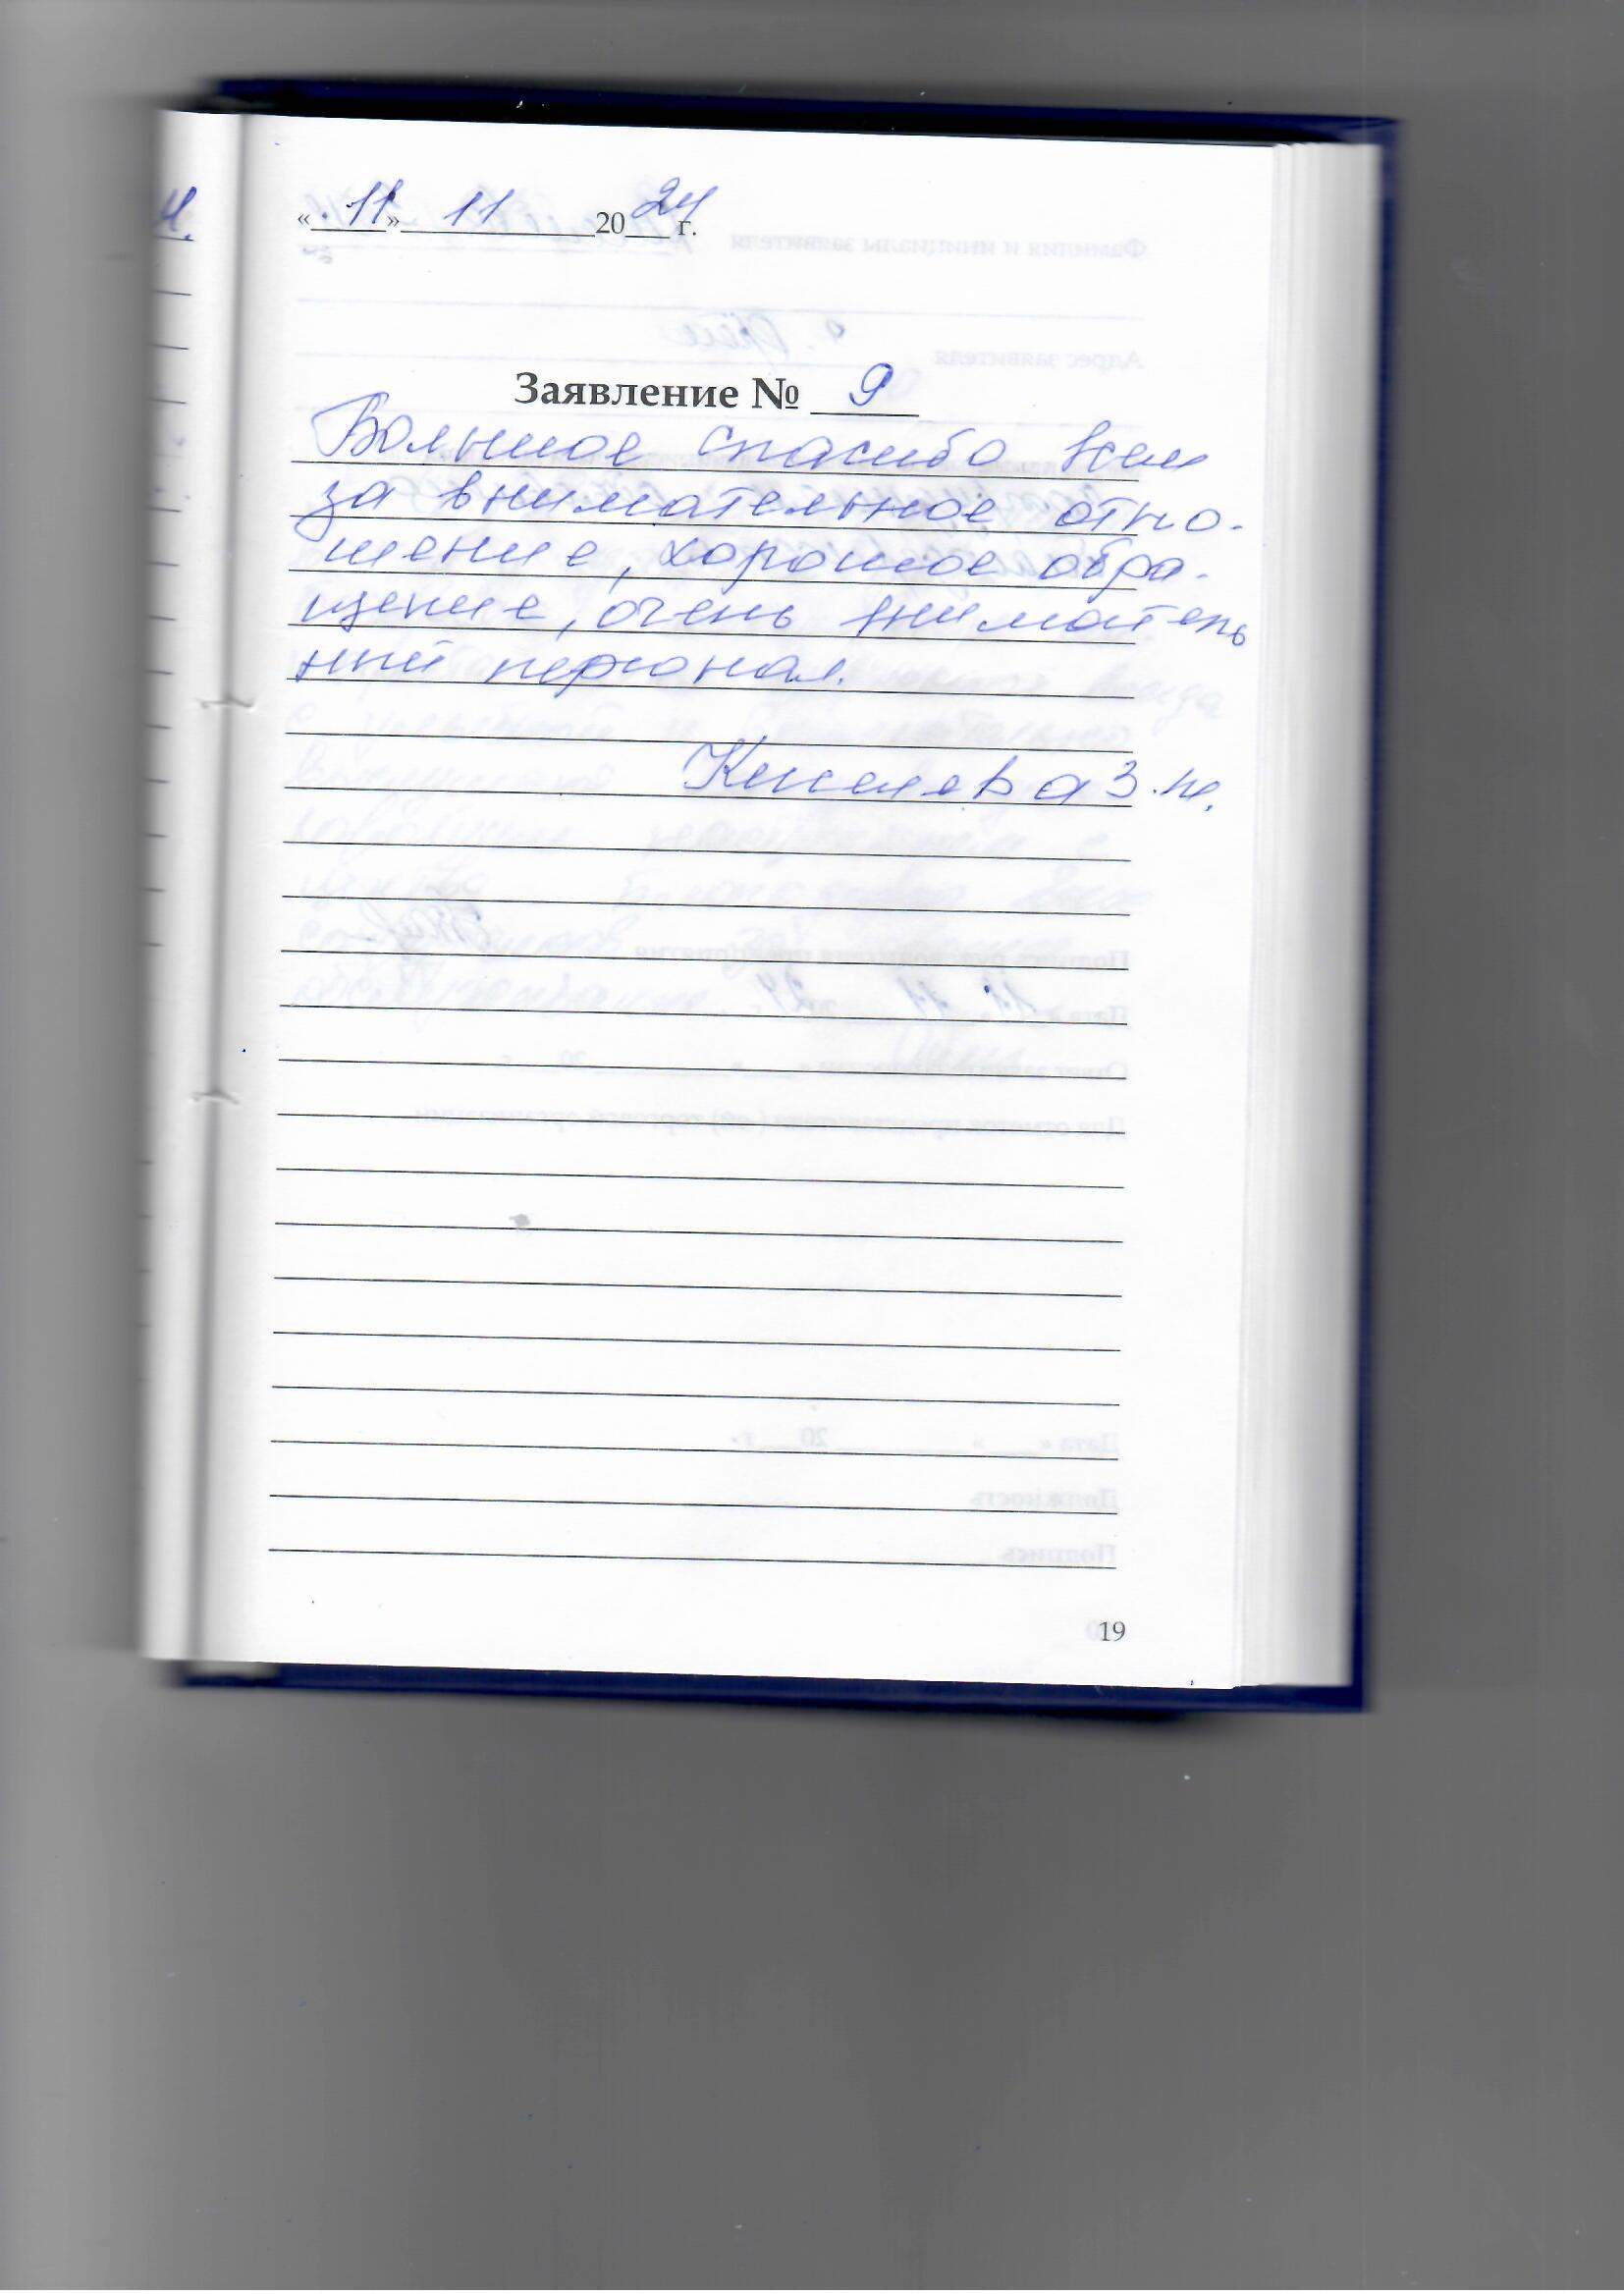 «11» 11 2024 г.
Заявление № 9
Большое спасибо всем
за внимательное отно-
шение, хорошое обра-
щение, очень вниматель
ный персонал.
Киселева З.И.
19